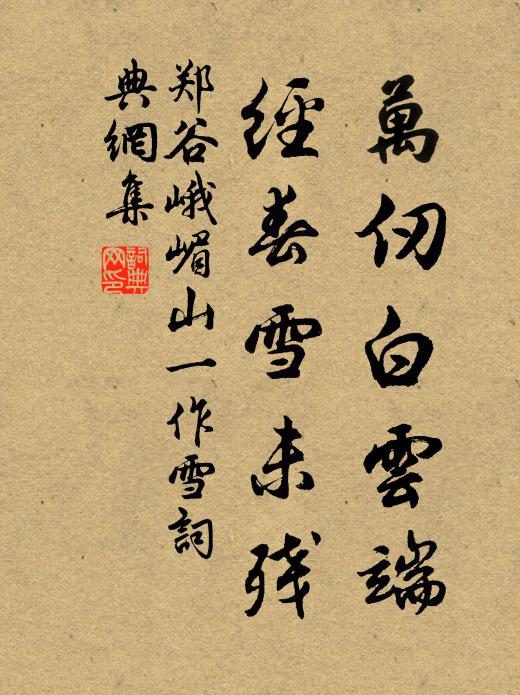 萬仞白雲端
經春雪未残
郑谷峨嵋山一作雪詞
典網集
詞典网印